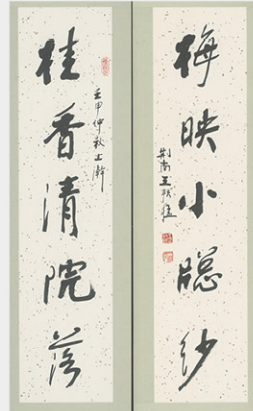 梅映小窗纱
荆南王
桂香清院落
壬申仲秋上澣